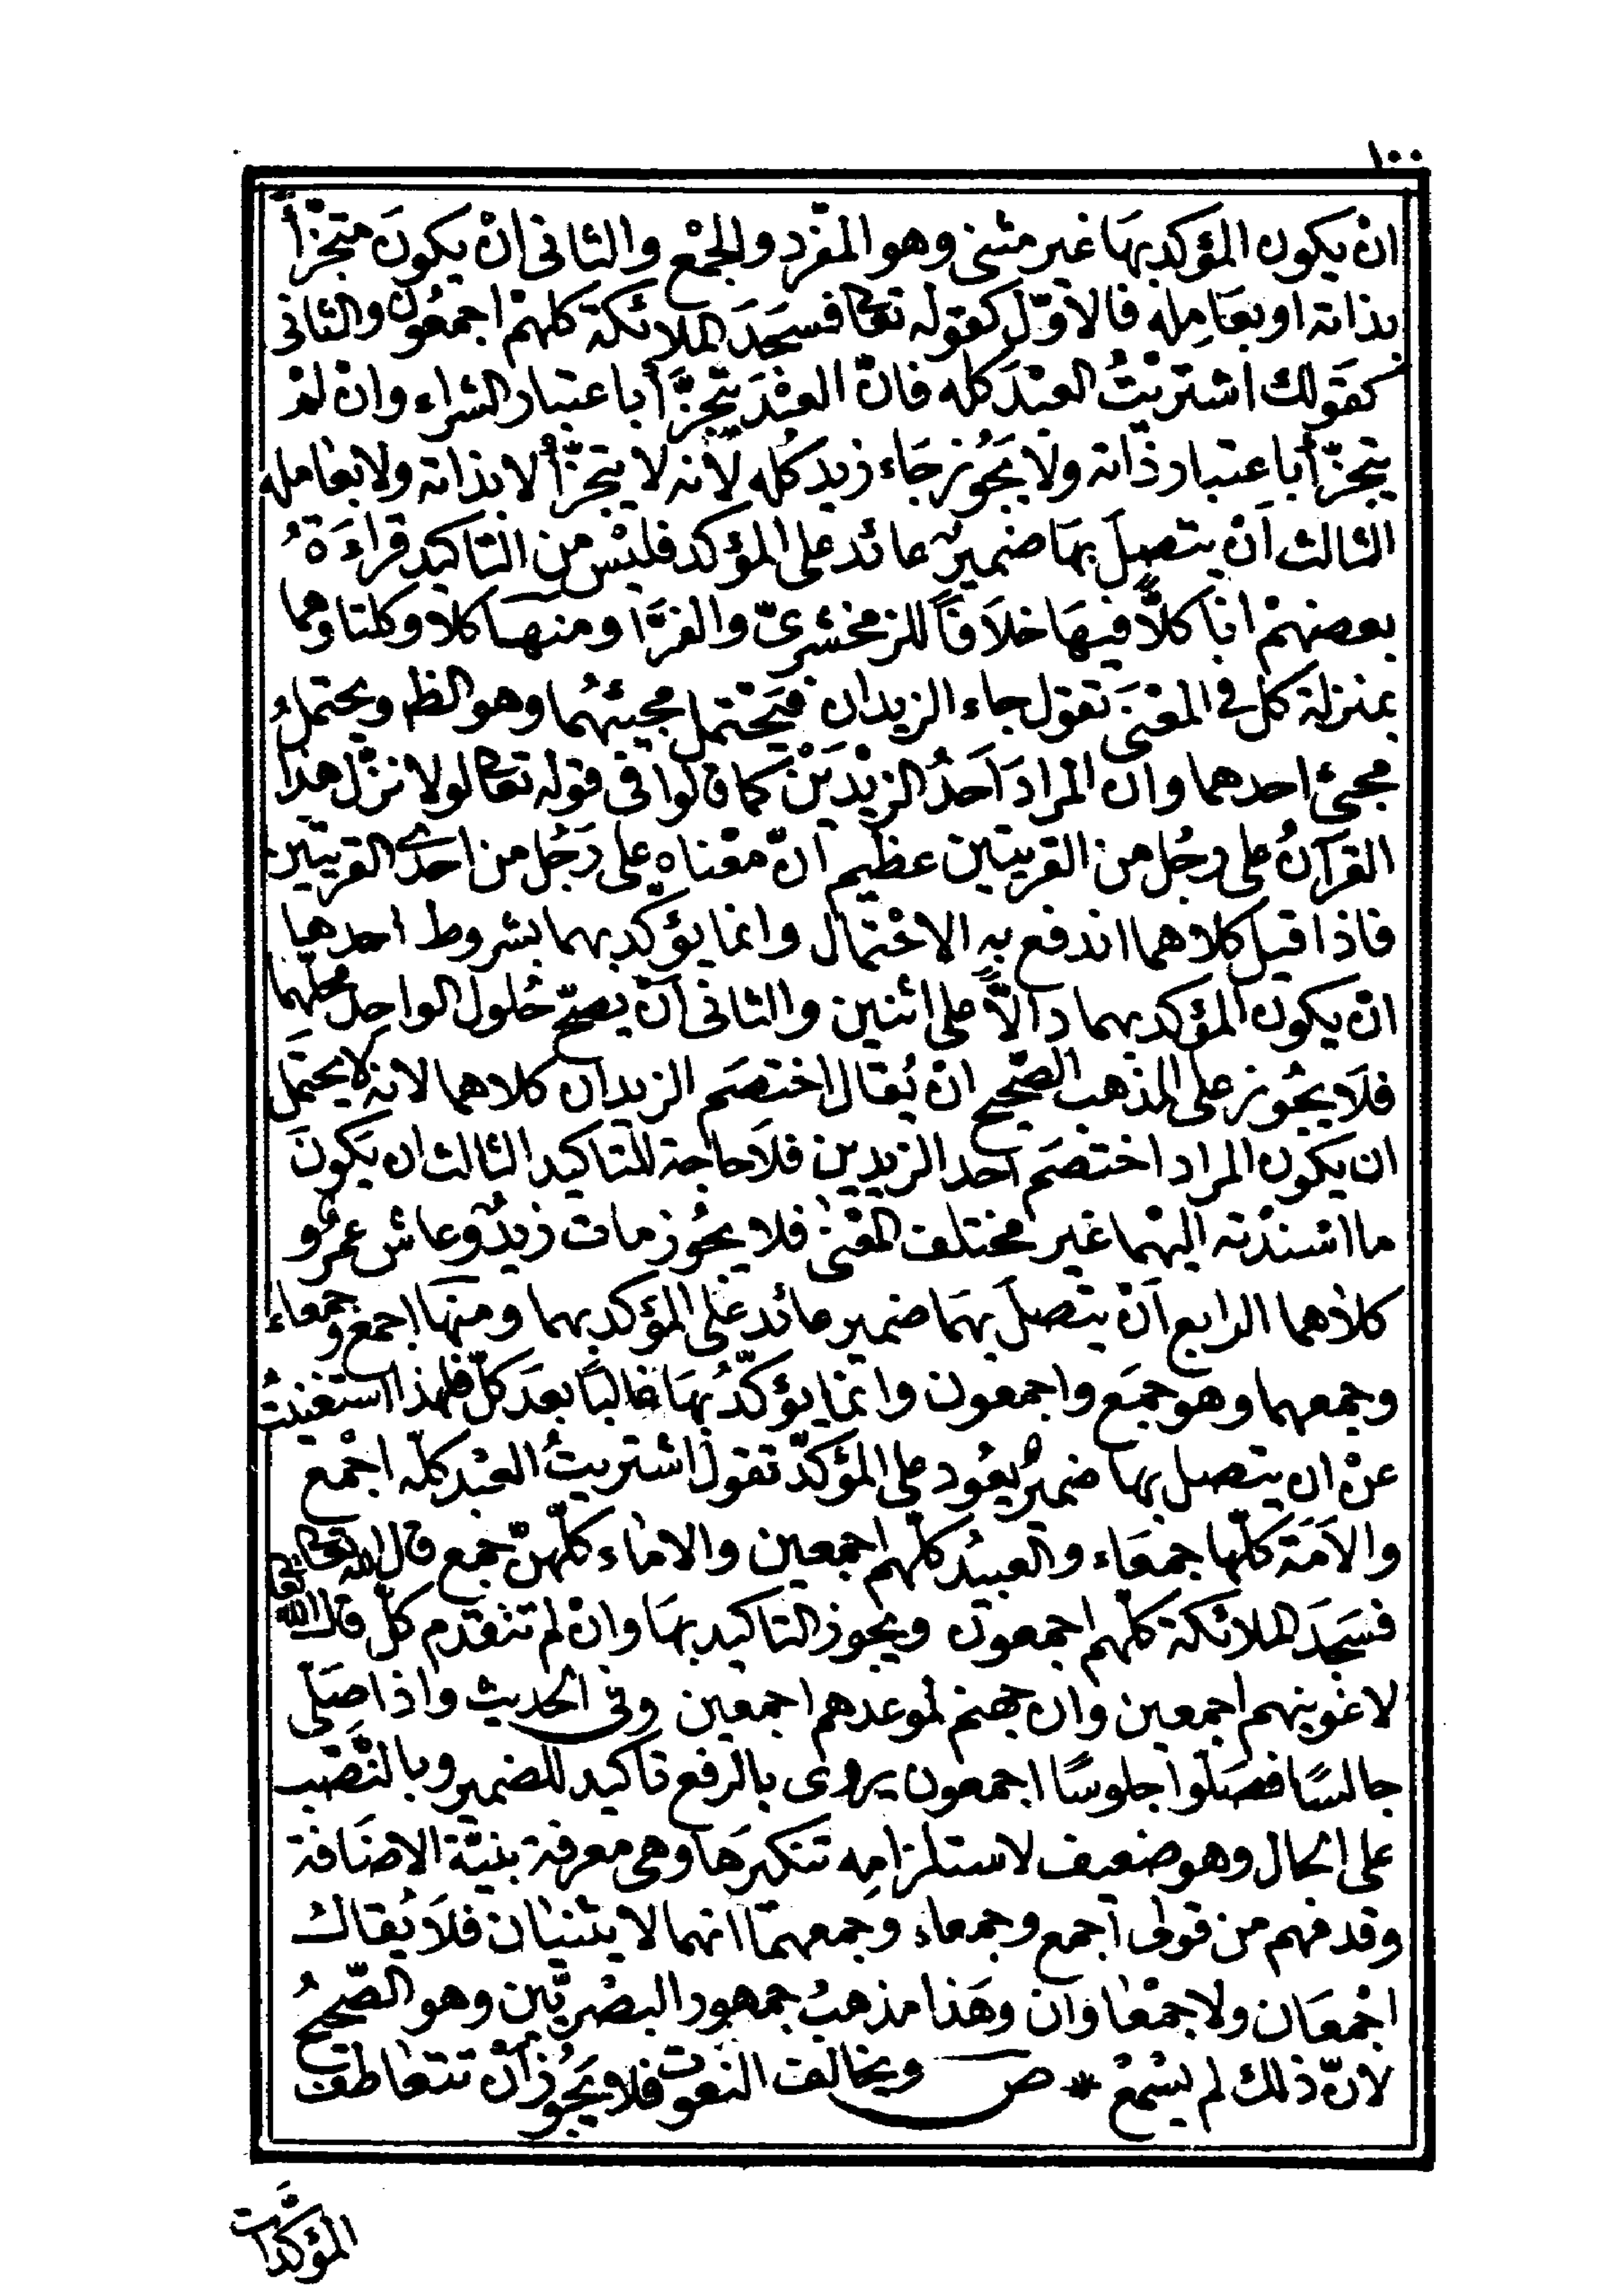 ١٠٠
ان يكون المؤكد بهَا غير مثنى وهو المفرد والجمْع والثانى انْ يكونَ متجزّأً
بذاته او بعَامِله فالاوّل كقوله تعا فسَجَدَ الملائكة كلهمْ اجمعُون والثانى
كقَولك اشتريْتُ العبْدَ كله فانّ العبْدَ يتجزَّأ باعتبار الشراء وانْ لمْ
يتجزّأ باعتبار ذاته ولا يَجُوز جَاء زيد كُله لأنه لا يتجزّأ لا بذاته ولا بعَامله
الثالث اَنْ يتصِلَ بهَا ضمير عائد على المؤكد فليْس من التاكيد قراءَةُ
بعضهمْ انا كلاًّ فيهَا خلاَفاً للزمخشرىّ والفرَّا ومنهَا كلا وكلتا وهما
بمنزلة كل فى المعْنىَ تقول جاء الزيدان فيَحْتمل مجيئهُما وهو الظ ويحتملُ
مجئ احدهما وان المرادَ اَحَدُ الزيْدَيْن كما قالوا فى قوله تعا لولا نزّل هذا
القرآنُ على رجُل من القريتين عظيم انّ معْناه على رَجُل من احدَى القريتين
فاذا قيل كلاهما اندفع به الاحْتمال وانما يؤكّد بهما بشروط احدها
ان يكون المؤكد بهما دالاًّ على اثنين والثانى اَنْ يصحّ حُلول الواحد محلّهما
فلاَ يجُوز على المذهب الصّحيح انْ يُقال اختصَم الزيدان كلاهما لانه لا يحتمل
ان يكون المراد اختصَم احد الزيدين فلاَ حاجة للتاكيد الثالث ان يكونَ
ما اسْندْته اليْهما غير مختلف المعْنىٰ فلا يجُوز مات زيدٌ وعاش عمرٌو
كلاهما الرابع اَنْ يتصلَ بهمَا ضمير عائد على المؤكد بهما ومنهَا اجمع وجمعاء
وجمعهما وهو جمَع واجمعون وانمَا يؤكّدُ بهَا غالبًا بعدَ كلّ فلهذا استغنيتُ
عنْ ان يتصل بها ضميرٌ يعُود على المؤكدّ تقول اشتريتُ العبْد كلّه اجْمع
والاَمَة كلّها جمعَاء والعبيْد كلّهم اجمعين والامَاء كلّهنّ جمع قال الله تعا
فسَجَدَ الملائكة كلّهم اجمعون ويجوز التاكيد بهَا وانْ لم تتقدم كلّ قال الله تعا
لاغوينهم اجمعين وان جهنم لموعدهم اجمعين وفى الحديث واذا صَلّى
جالسًا فصَلّوا جلوسًا اجمعون يروى بالرفع تاكيد للضمير وبالنّصْب
على الحال وهو ضعيف لاستلزامِه تنكيرَها وهى معرفة بنيّة الاضَافة
وقد فهم من قولى اجمع وجمعاء وجمعهمَا انهما لا يثنيَان فلاَ يُقال
اجْمعَان ولا جمْعَاوَان وهَذا مذهبُ جمهور البصْريّين وهو الصّحيحُ
لانّ ذلك لم يسْمعْ * ص ويخالف النعوت فلا يَجُوز اَنْ تتعَاطف
المؤكدات